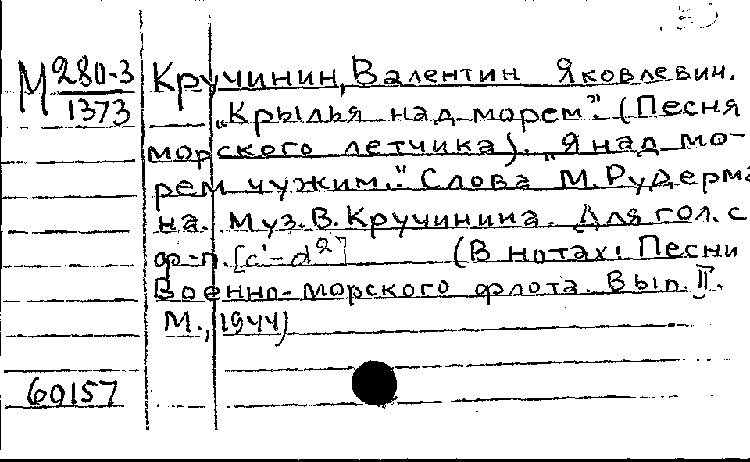 М 280-3
1373
Кручинин, Валентин Яковлевич.
„Крылья над морем". (Песня
морского летчика). „Я над мо-
рем чужим." Слова М. Рудерма
на. Муз. В. Кручинина. Для гол. с
ф-п. [c'-d²] (В нотах: Песни
Военно-морского флота. Вып. II.
М., 1944)
60157